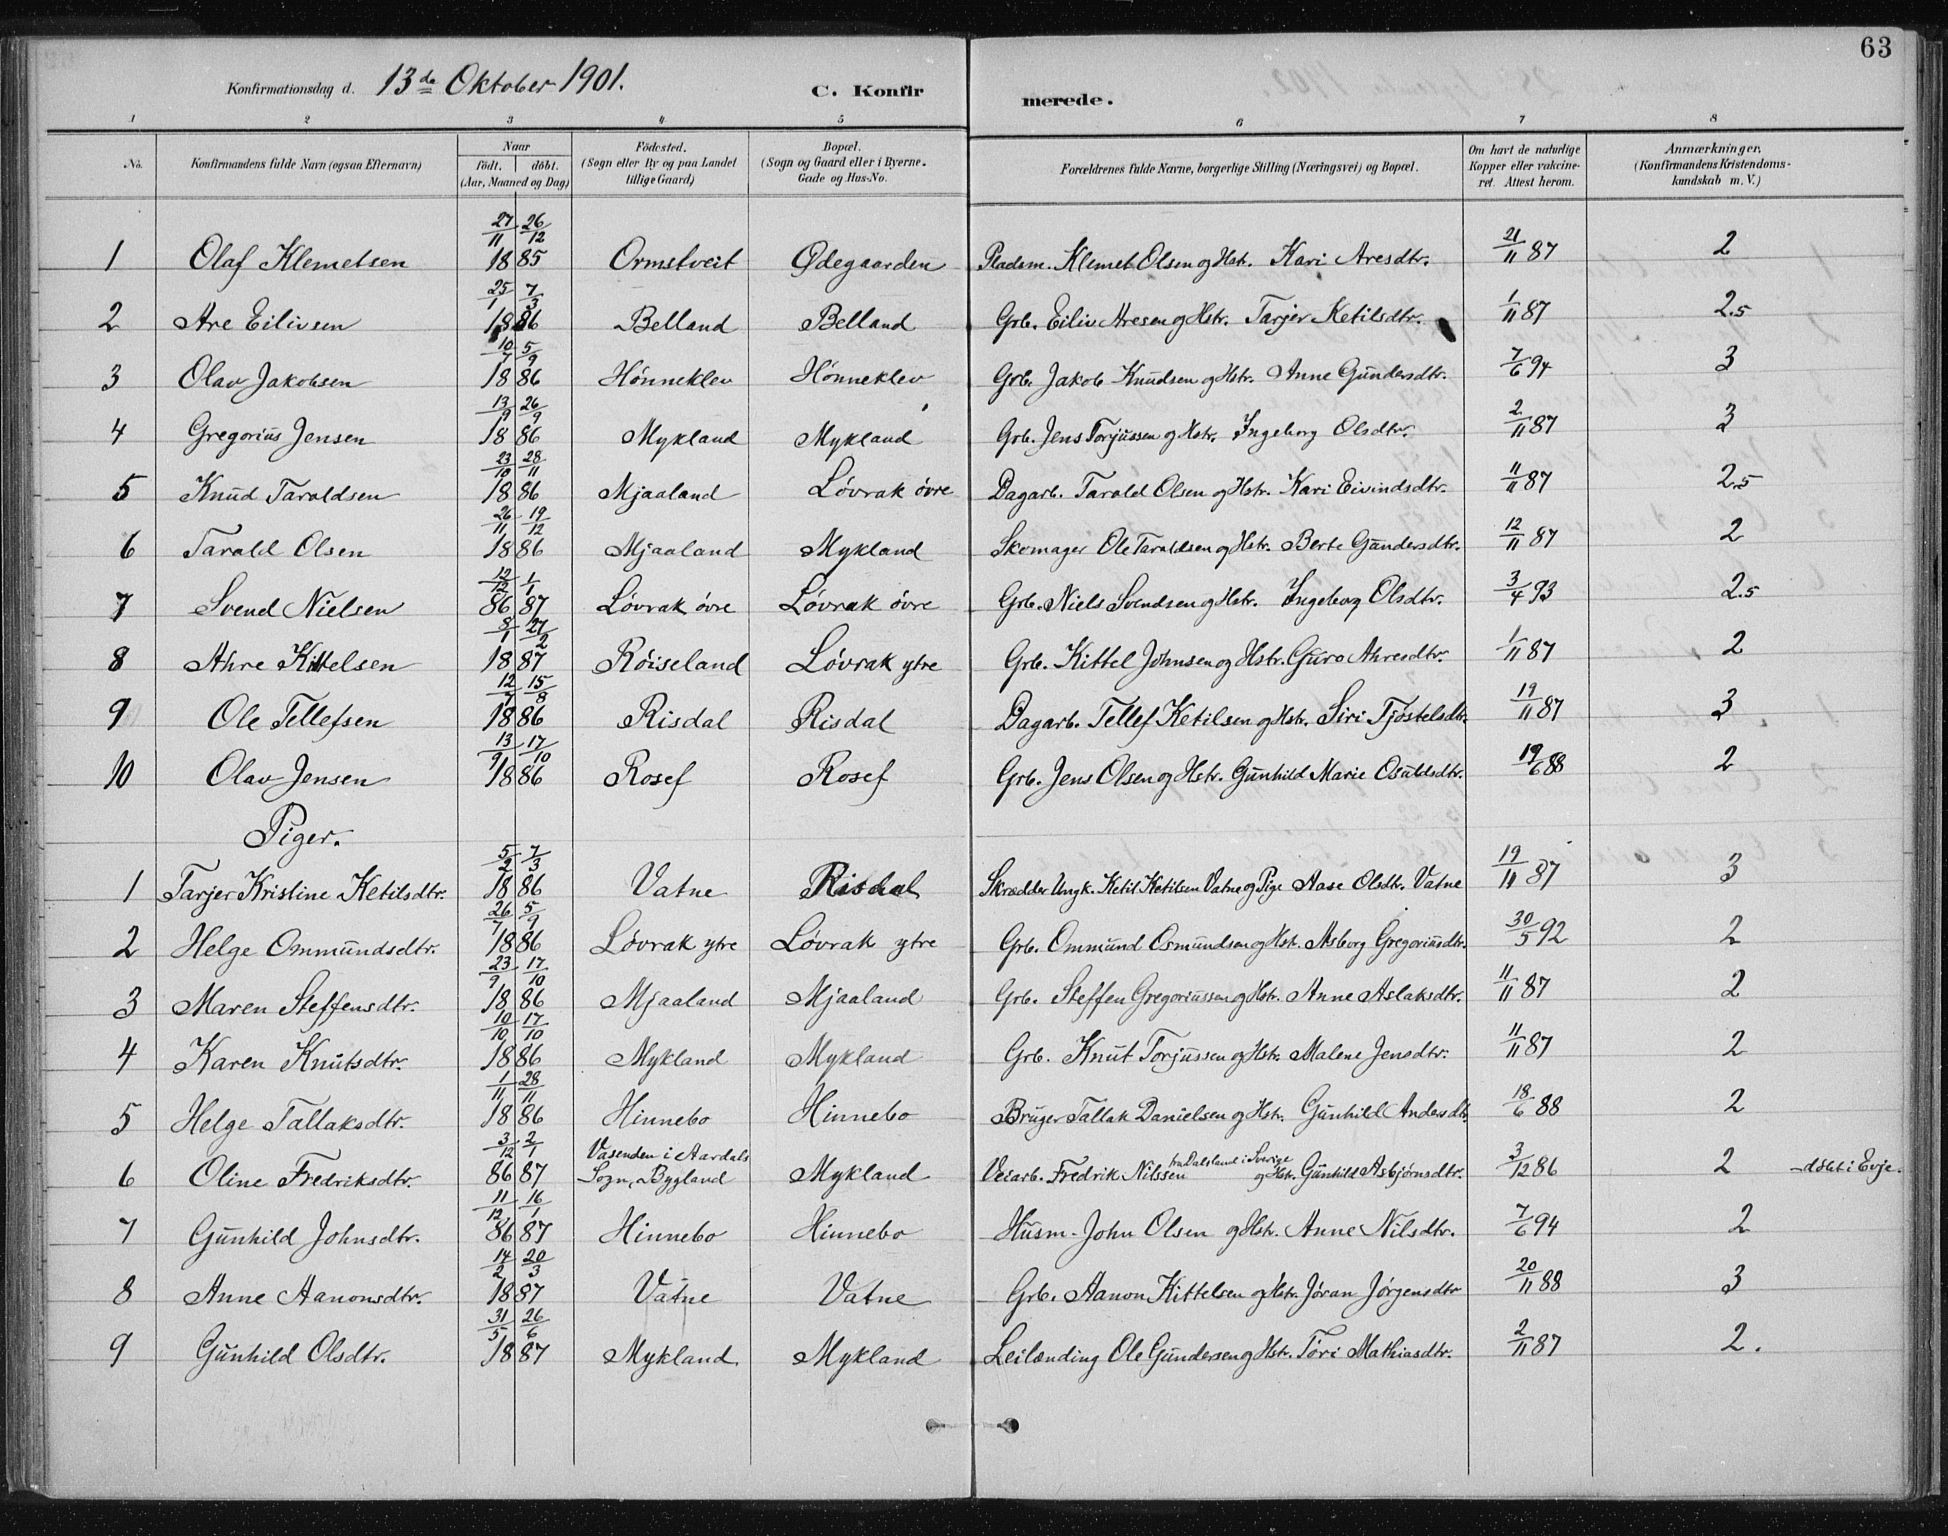 63
Konfirmationsdag d. 13de Oktober 1901. C. Konfir merede.
1 2 3 4 5 6 7 8
No. Konfirmandens fulde Navn (ogsaa Efternavn) Naar født. døbt. (Aar, Maaned og Dag) Fødested. (Sogn eller By og paa Landet tillige Gaard) Bopæl. (Sogn og Gaard eller i Byerne. Gade og Hus-No. Forældrenes fulde Navne, borgerlige Stilling (Næringsvei) og Bopæl. Om havt de naturlige Kopper eller vakcineret. Attest herom. Anmærkninger, (Konfirmandens Kristendomskundskab m. V.)
1 Olaf Klemetsen 27/11 26/12 1885 Ormstveit Ødegaarden Pladsm. Klemet Olsen og Hstr. Kari Aresdtr. 21/11 87 2
2 Are Eilivsen 25/1 7/3 1886 Belland Belland Grb. Eiliv Aresen og Hstr. Tarjer Ketilsdtr. 1/11 87 2.5
3 Olav Jakobsen 10/7 5/9 1886 Hønneklev Hønneklev Grb. Jakob Knudsen og Hstr. Anne Gundersdtr. 7/6 94 3
4 Gregorius Jensen 13/9 26/9 1886 Mykland Mykland Grb. Jens Torjussen og Hstr. Ingeborg Olsdtr. 2/11 87 3
5 Knud Taraldsen 23/10 28/11 1886 Mjaaland Løvrak øvre Dagarb. Tarald Olsen og Hstr. Kari Eivindsdtr. 11/11 87 2.5
6 Tarald Olsen 26/11 19/12 1886 Mjaaland Mykland Skomager Ole Taraldsen og Hstr. Berte Gundersdtr. 12/11 87 2
7 Svend Nielsen 12/12 1/1 86 87 Løvrak øvre Løvrak øvre Grb. Niels Svendsen og Hstr. Ingeborg Olsdtr. 3/4 93 2.5
8 Ahre Kittelsen 8/1 27/2 1887 Røiseland Løvrak ytre Grb. Kittel Johnsen og Hstr. Guro Ahresdtr. 1/11 87 2
9 Ole Tellefsen 12/7 15/8 1886 Risdal Risdal Dagarb. Tellef Ketilsen og Hstr. Siri Tjøstelsdtr. 19/11 87 3
10 Olav Jensen 13/9 17/10 1886 Rosef Rosef Grb. Jens Olsen og Hstr. Gunhild Marie Osuldsdtr. 19/6 88 2
Piger.
1 Tarjer Kristine Ketilsdtr. 5/2 7/3 1886 Vatne Risdal Skrædder Ungk. Ketil Ketilsen Vatne og Pige Aase Olsdtr. Vatne 19/11 87 3
2 Helge Ommundsdtr. 26/7 5/9 1886 Løvrak ytre Løvrak ytre Grb. Ommund Osmundsen og Hst. Asborg Gregoriusdtr. 30/5 92 2
3 Maren Steffensdtr. 23/9 17/10 1886 Mjaaland Mjaaland Grb. Steffen Gregoriussen og Hstr. Anne Aslaksdtr. 11/11 87 2
4 Karen Knutsdtr. 10/10 17/10 1886 Mykland Mykland Grb. Knut Torjussen og Hstr. Malene Jensdtr. 11/11 87 2
5 Helge Tallaksdtr. 1/11 28/11 1886 Hinnebo Hinnebo Bruger Tallak Danielsen og Hstr. Gunhild Andersdtr. 18/6 88 2
6 Oline Fredriksdtr. 3/12 2/1 86 87 Vasenden i Aardals Sogn, Bygland Mykland Veiarb. Fredrik Nilssen fra Dalsland i Sverige og Hstr. Gunhild Asbjørnsdtr. 3/12 86 2 - døbt i Evje.
7 Gunhild Johnsdtr. 11/12 16/1 86 87 Hinnebo Hinnebo Husm. John Olsen og Hstr. Anne Nilsdtr. 7/6 94 2
8 Anne Aanonsdtr. 14/2 20/3 1887 Vatne Vatne Grb. Aanon Kittelsen og Hstr. Jøran Jørgensdtr 20/11 88 3
9 Gunhild Olsdtr. 31/5 26/6 1887 Mykland Mykland Leilænding Ole Gundersen og Hstr. Tøri Mathiasdtr. 2/11 87 2.